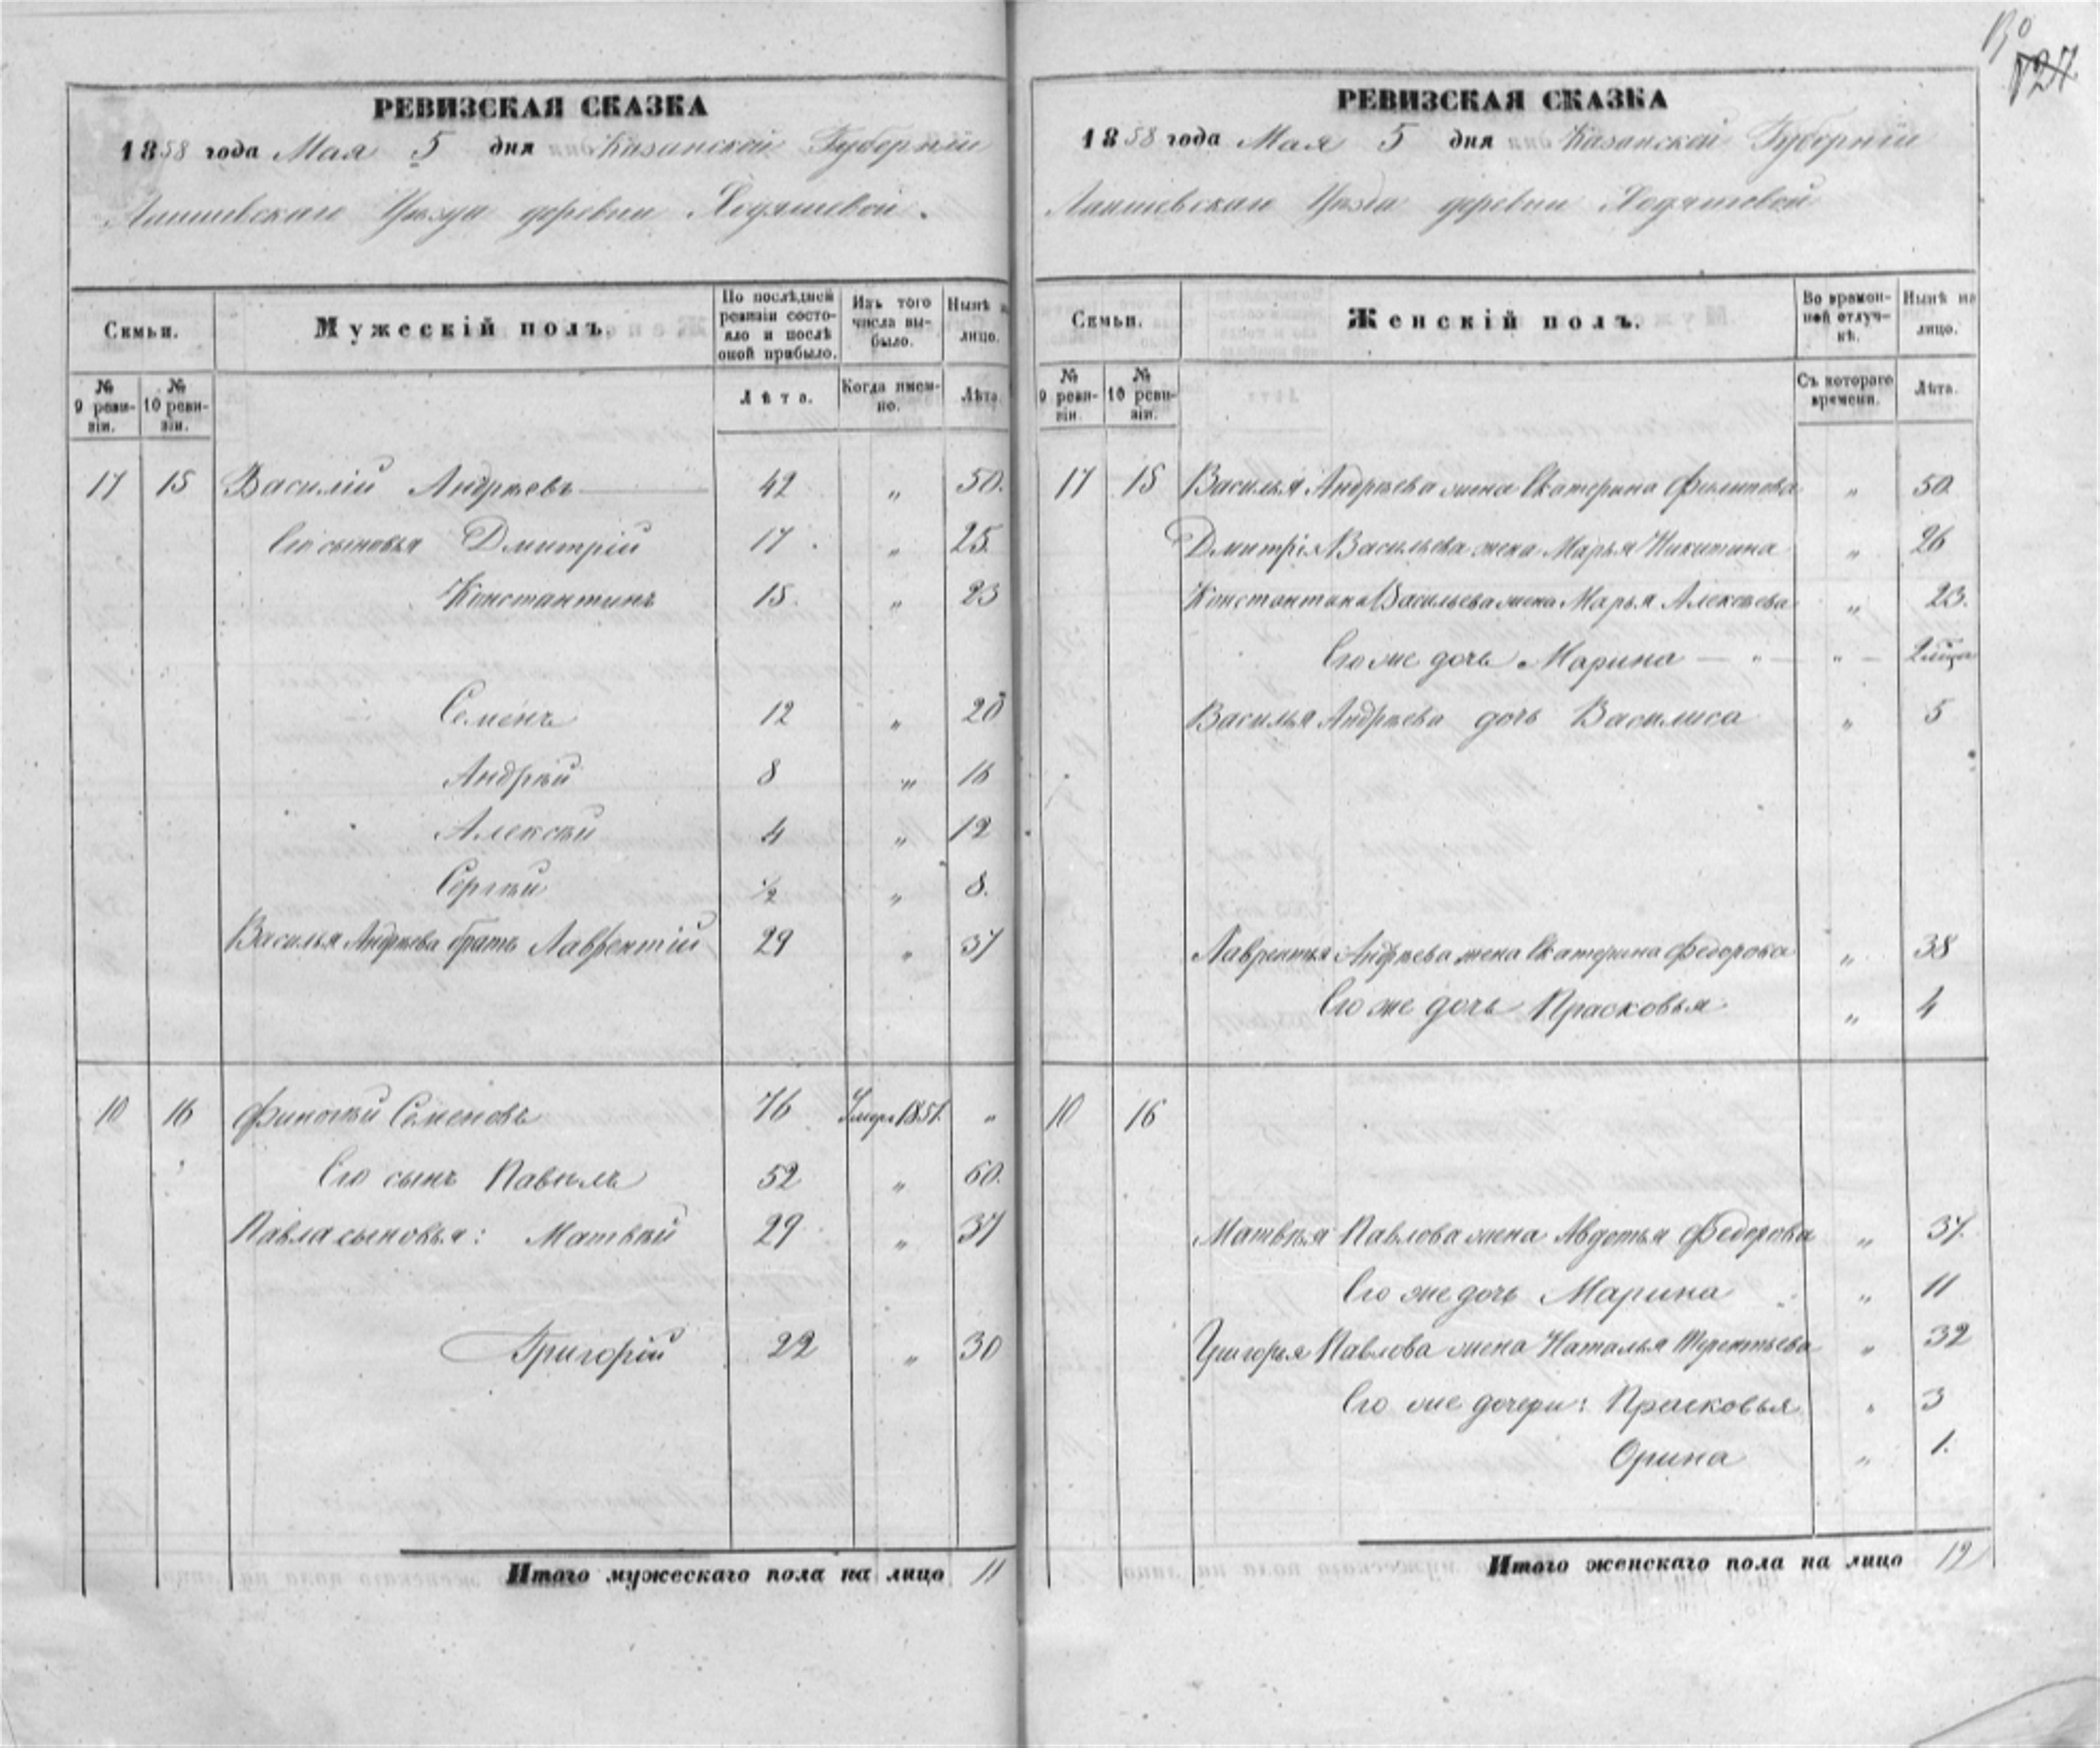 РЕВИЗСКАЯ СКАЗКА
1858 года Мая 5 дня Казанской Губерніи
Лаишевскаго Уѣзда деревни Ходяшевой.
Семьи.
Мужескій полъ.
По послѣдней ревизіи состояло и послѣ оной прибыло.
Изъ того числа выбыло.
Нынѣ на лицо.
№ 9 ревизіи.
№ 10 ревизіи.
Лѣта.
Когда именно.
Лѣта.
17 15 Василій Андрѣевъ 42 „ 50.
Его сыновья Дмитрій 17 „ 25
Константинъ 15. „ 23
Семенъ 12 „ 20
Андрѣй 8 „ 16
Алексѣй 4 „ 12
Сергѣй ½ „ 8.
Василья Андрѣева братъ Лаврентій 29 „ 37
10 16 Семеновъ 76 Умеръ „
Его сынъ Павелъ 52 „ 60.
Павла сыновья: Матвѣй 29 „ 37
Григорій 22 „ 30
Итого мужескаго пола на лицо 11
127
РЕВИЗСКАЯ СКАЗКА
1858 года Мая 5 дня Казанской Губерніи
Лаишевскаго Уѣзда деревни Ходяшевой
Семьи.
Женскій полъ.
Во временной отлучкѣ.
Нынѣ на лицо.
№ 9 ревизіи.
№ 10 ревизіи.
Съ котораго времени.
Лѣта.
17 15 Василья Андрѣева жена Екатерина Филипова „ 50
Дмитрія Васильева жена Марья Никитина „ 26
Константина Васильева жена Марья Алексѣева „ 23.
Его же дочь Марина „
Василья Андрѣева дочь Василиса „ 5
Лаврентья Андрѣева жена Екатерина Федорова „ 38
Его же дочь Прасковья „ 4
10 16
Матвѣя Павлова жена Авдотья Федорова „ 37.
Его же дочь Марина „ 11
Григорья Павлова жена Наталья Терентьева „ 32
Его же дочери: Прасковья „ 3
Орина „ 1.
Итого женскаго пола на лицо 12